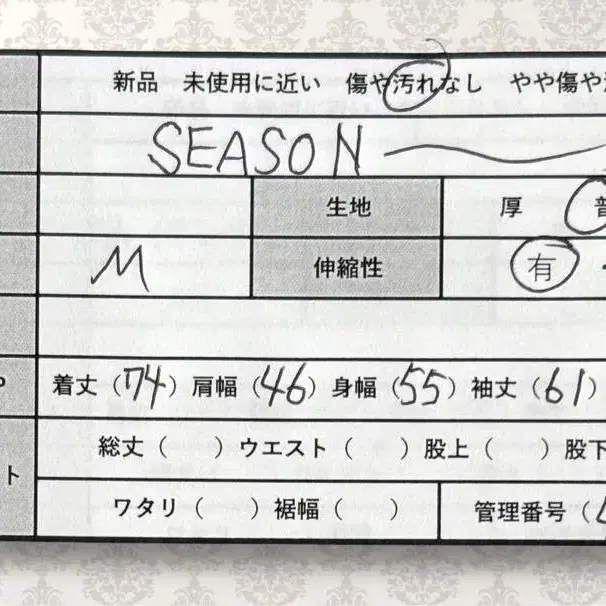 新品 未使用に近い 傷や汚れなし やや傷や
SEASON
生地 厚 普
M 伸縮性 有 ・
着丈（74）肩幅（46）身幅（55）袖丈（61）
総丈（ ）ウエスト（ ）股上（ ）股下
ト
ワタリ（ ）裾幅（ ） 管理番号（